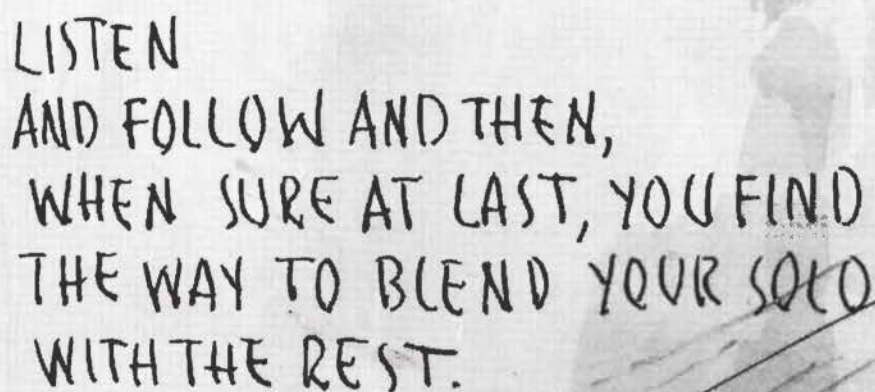 LISTEN
AND FOLLOW AND THEN,
WHEN SURE AT LAST, YOU FIND
THE WAY TO BLEND YOUR SOLO
WITH THE REST.